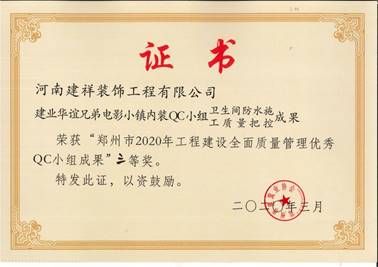 证书
河南建祥装饰工程有限公司
建业华谊兄弟电影小镇内装QC小组卫生间防水施工质量把控成果
荣获“郑州市2020年工程建设全面质量管理优秀
QC小组成果”三等奖。
特发此证，以资鼓励。
二〇二〇年三月